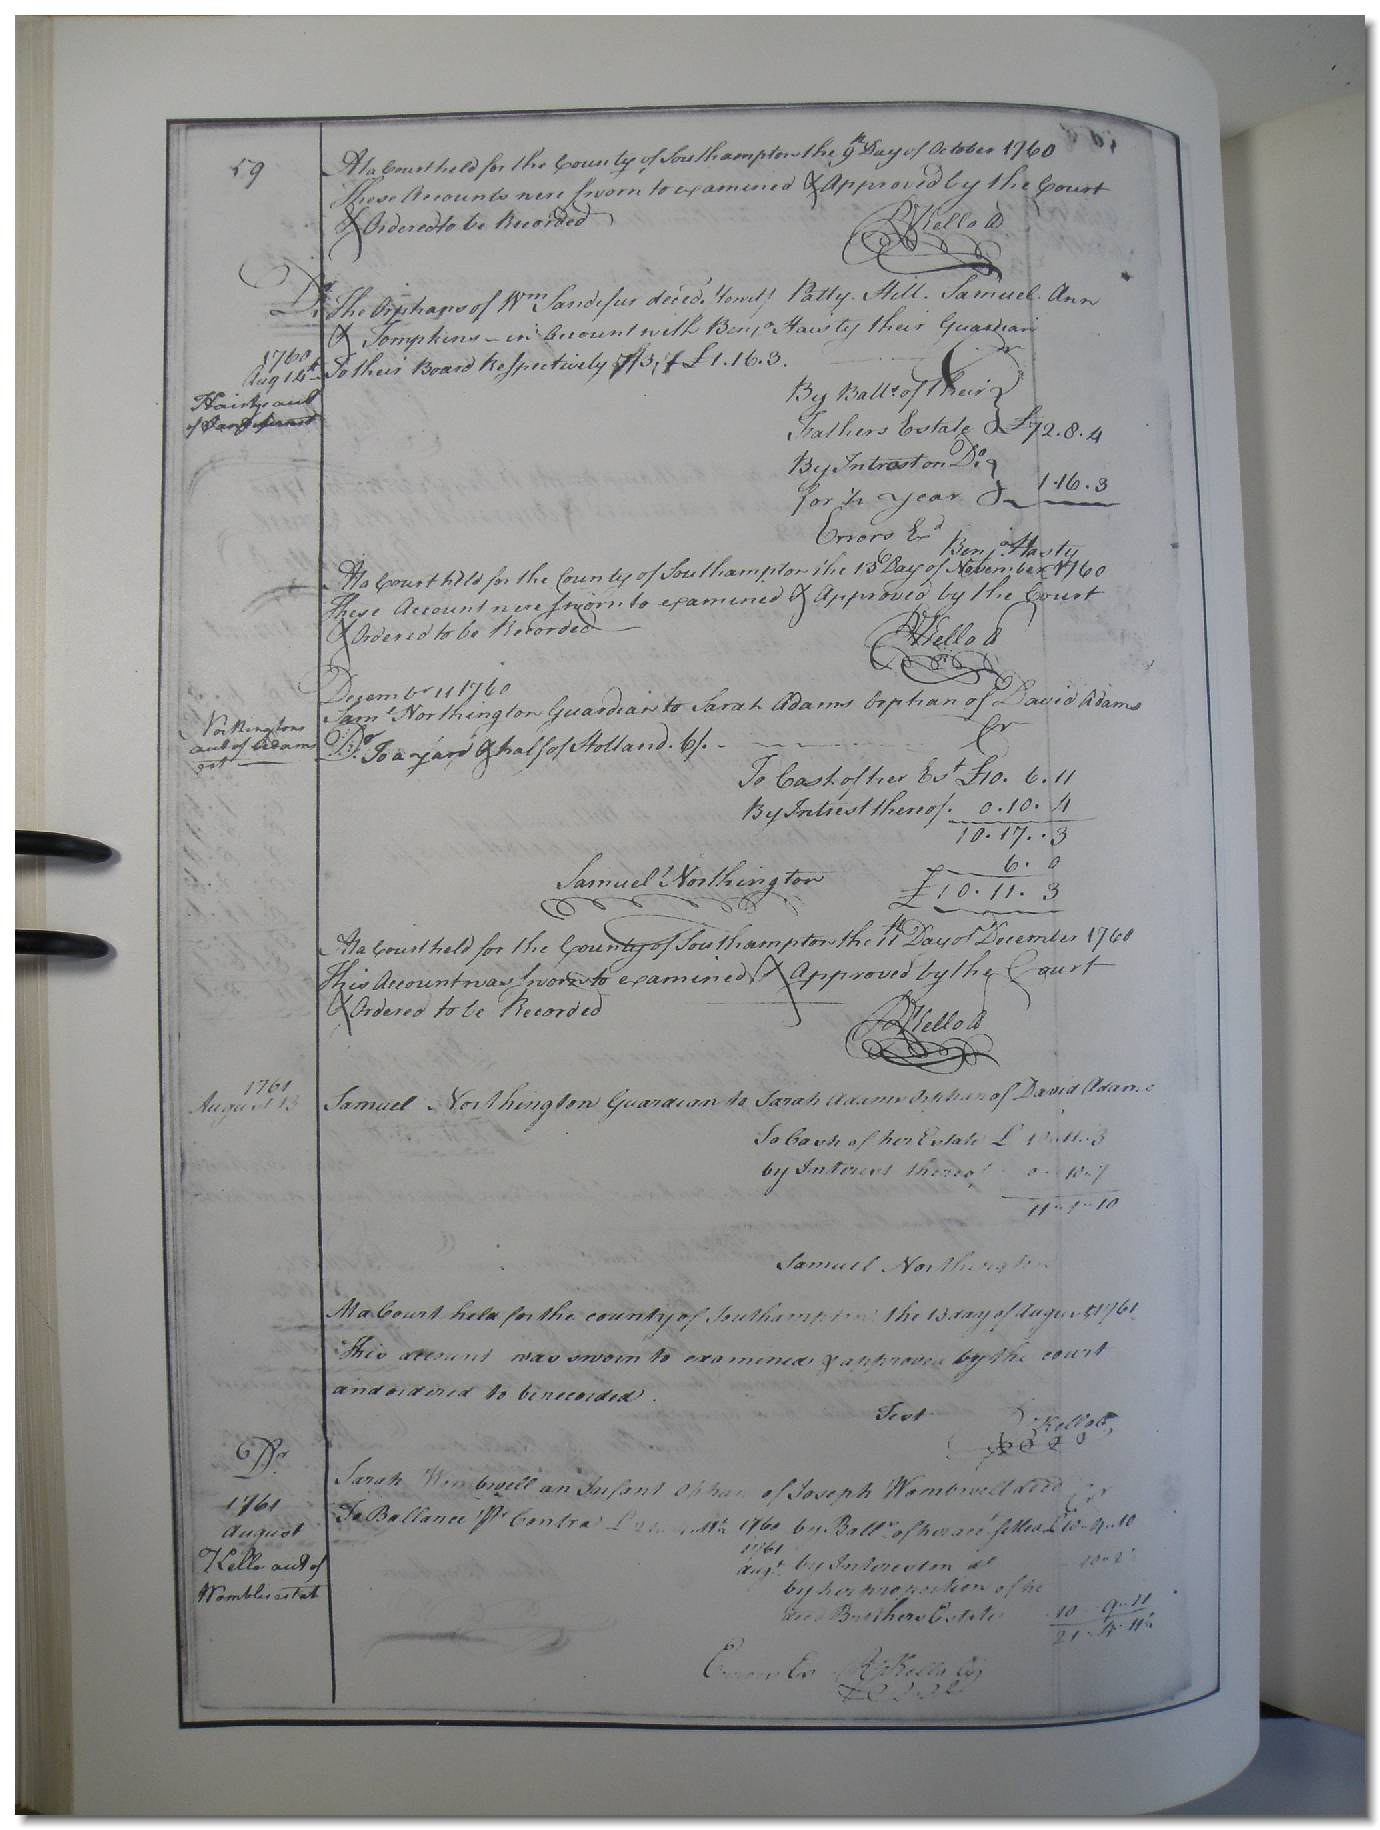 59
At a Court held for the County of Southampton the 9th Day of October 1760
These Accounts were sworn to examined & Approved by the Court
& Ordered to be Recorded
RKello
Dr. The Orphans of Wm Sandefur deced. Patty. Hill. Samuel. Ann
& Tompkins in Account with Benja Haisty their Guardian
Cr
1760
Aug 14th To their Board Respectively £1.16.3.
Haisty acct
of
By Balle of their
Fathers Estate £72.8.4
By Intrast on Do
for ½ year 1.16.3
Errors Ed
Benja Hasty
At a Court held for the County of Southampton the 13 Day of November 1760
These Account were sworn to examined & Approved by the Court
& Ordered to be Recorded
RKello
Decembr 11 1760
Saml Northington Guardian to Sarah Adams Orphan of David Adams
Cr
Northingtons
acct of Adams
est
Dr. To a yard & half of Holland. 6/.
To Cash of her Est £10. 6. 11
By Intrest thereof. 0. 10. 4
10. 17. 3
6. 0
£10. 11. 3
Samuel Northington
At a Court held for the County of Southampton the 11th Day of December 1760
This Account was sworn to examined & Approved by the Court
& Ordered to be Recorded
RKello
1761
August 13
Samuel Northington Guardian to Sarah Adams Orphan of David Adams
To Cash of her Estate £ 10 11 3
by Interest thereof 0 10 7
11 1 10
Samuel Northington
At a Court held for the county of Southampton the 13 day of August 1761
This account was sworn to examined & approved by the court
and ordered to be recorded.
Test
RKello
Dr
Sarah Wombwell an Infant Orphan of Joseph Wombwell decd
Cr
1761
August
Kello acct of
Wombles estat
To Ballance Pr Contra £
1760 by Balle of her acct settled £10 4 10
1761
Augt by Interest on do 10 2
by her proportion of he
decd Brothers Estate 10 9 11
21 4 11½
Errors Ex RKello